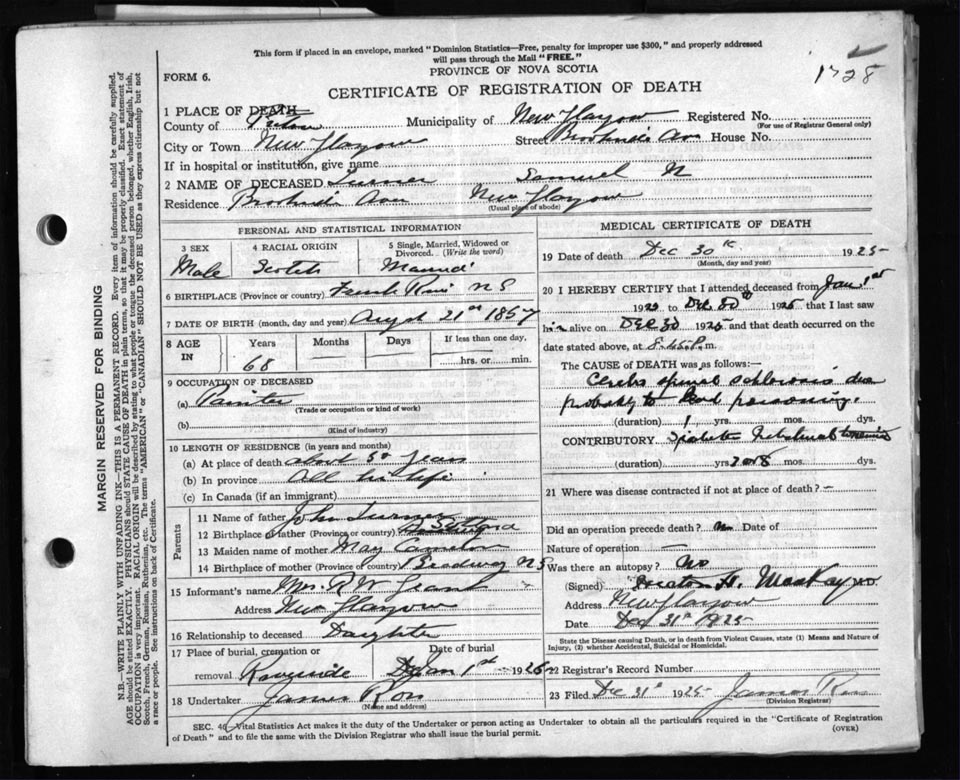 This form if placed in an envelope, marked "Dominion Statistics—Free, penalty for improper use $300," and properly addressed
will pass through the Mail "FREE."
1728
FORM 6.
PROVINCE OF NOVA SCOTIA
CERTIFICATE OF REGISTRATION OF DEATH
1 PLACE OF DEATH
County of Pictou Municipality of New Glasgow Registered No.
(For use of Registrar General only)
City or Town New Glasgow Street Brookside Ave House No.
If in hospital or institution, give name
2 NAME OF DECEASED Turner Samuel N
Residence Brookside Ave New Glasgow
(Usual place of abode)
PERSONAL AND STATISTICAL INFORMATION
3 SEX
Male
4 RACIAL ORIGIN
Scotch
5 Single, Married, Widowed or
Divorced. (Write the word)
Married
6 BIRTHPLACE (Province or country) N S
7 DATE OF BIRTH (month, day and year) August 21st 1857
8 AGE IN
Years Months Days If less than one day,
68 hrs. or min.
9 OCCUPATION OF DECEASED
(a) Painter
(Trade or occupation or kind of work)
(b)
(Kind of industry)
10 LENGTH OF RESIDENCE (in years and months)
(a) At place of death about 50 years
(b) In province All his life
(c) In Canada (if an immigrant)
Parents
11 Name of father John Turner
12 Birthplace of father (Province or country)
13 Maiden name of mother May Cameron
14 Birthplace of mother (Province or country) N S
15 Informant's name Mrs. R W Grant
Address New Glasgow
16 Relationship to deceased Daughter
17 Place of burial, cremation or Date of burial
removal Riverside Jan 1st 1926
18 Undertaker James Ross
(Name and address)
MEDICAL CERTIFICATE OF DEATH
19 Date of death Dec 30th 1925
(Month, day and year)
20 I HEREBY CERTIFY that I attended deceased from Jan 1st
1925 to Dec 30th 1925 that I last saw
him alive on Dec 30 1925 and that death occurred on the
date stated above, at 8.45 P.m.
The CAUSE OF DEATH was as follows:—
Cerebro spinal sclerosis due
probably to lead poisoning.
(duration) 1 yrs. mos. dys.
CONTRIBUTORY.
(duration) yrs mos. dys.
21 Where was disease contracted if not at place of death? —
Did an operation precede death? no Date of
Nature of operation —
Was there an autopsy? No
(Signed) H. MacKay M.D.
Address New Glasgow
Date Dec 31st 1925
State the Disease causing Death, or in death from Violent Causes, state (1) Means and Nature of
Injury, (2) whether Accidental, Suicidal or Homicidal.
22 Registrar's Record Number
23 Filed Dec 31st 1925 James Ross
(Division Registrar)
SEC. 40, Vital Statistics Act makes it the duty of the Undertaker or person acting as Undertaker to obtain all the particulars required in the "Certificate of Registration
of Death" and to file the same with the Division Registrar who shall issue the burial permit.
(OVER)
MARGIN RESERVED FOR BINDING
N.B.—WRITE PLAINLY WITH UNFADING INK—THIS IS A PERMANENT RECORD. Every item of information should be carefully supplied.
AGE should be stated EXACTLY. PHYSICIANS should STATE CAUSE OF DEATH in plain terms, so that it may be properly classified. Exact statement of
OCCUPATION is very important. RACIAL ORIGIN will be described by stating to what people or tongue the deceased person belonged, whether English, Irish,
Scotch, French, German, Russian, Ruthenian, etc. The terms "AMERICAN" or "CANADIAN" SHOULD NOT BE USED as they express citizenship but not
a race or people. See instructions on back of Certificate.